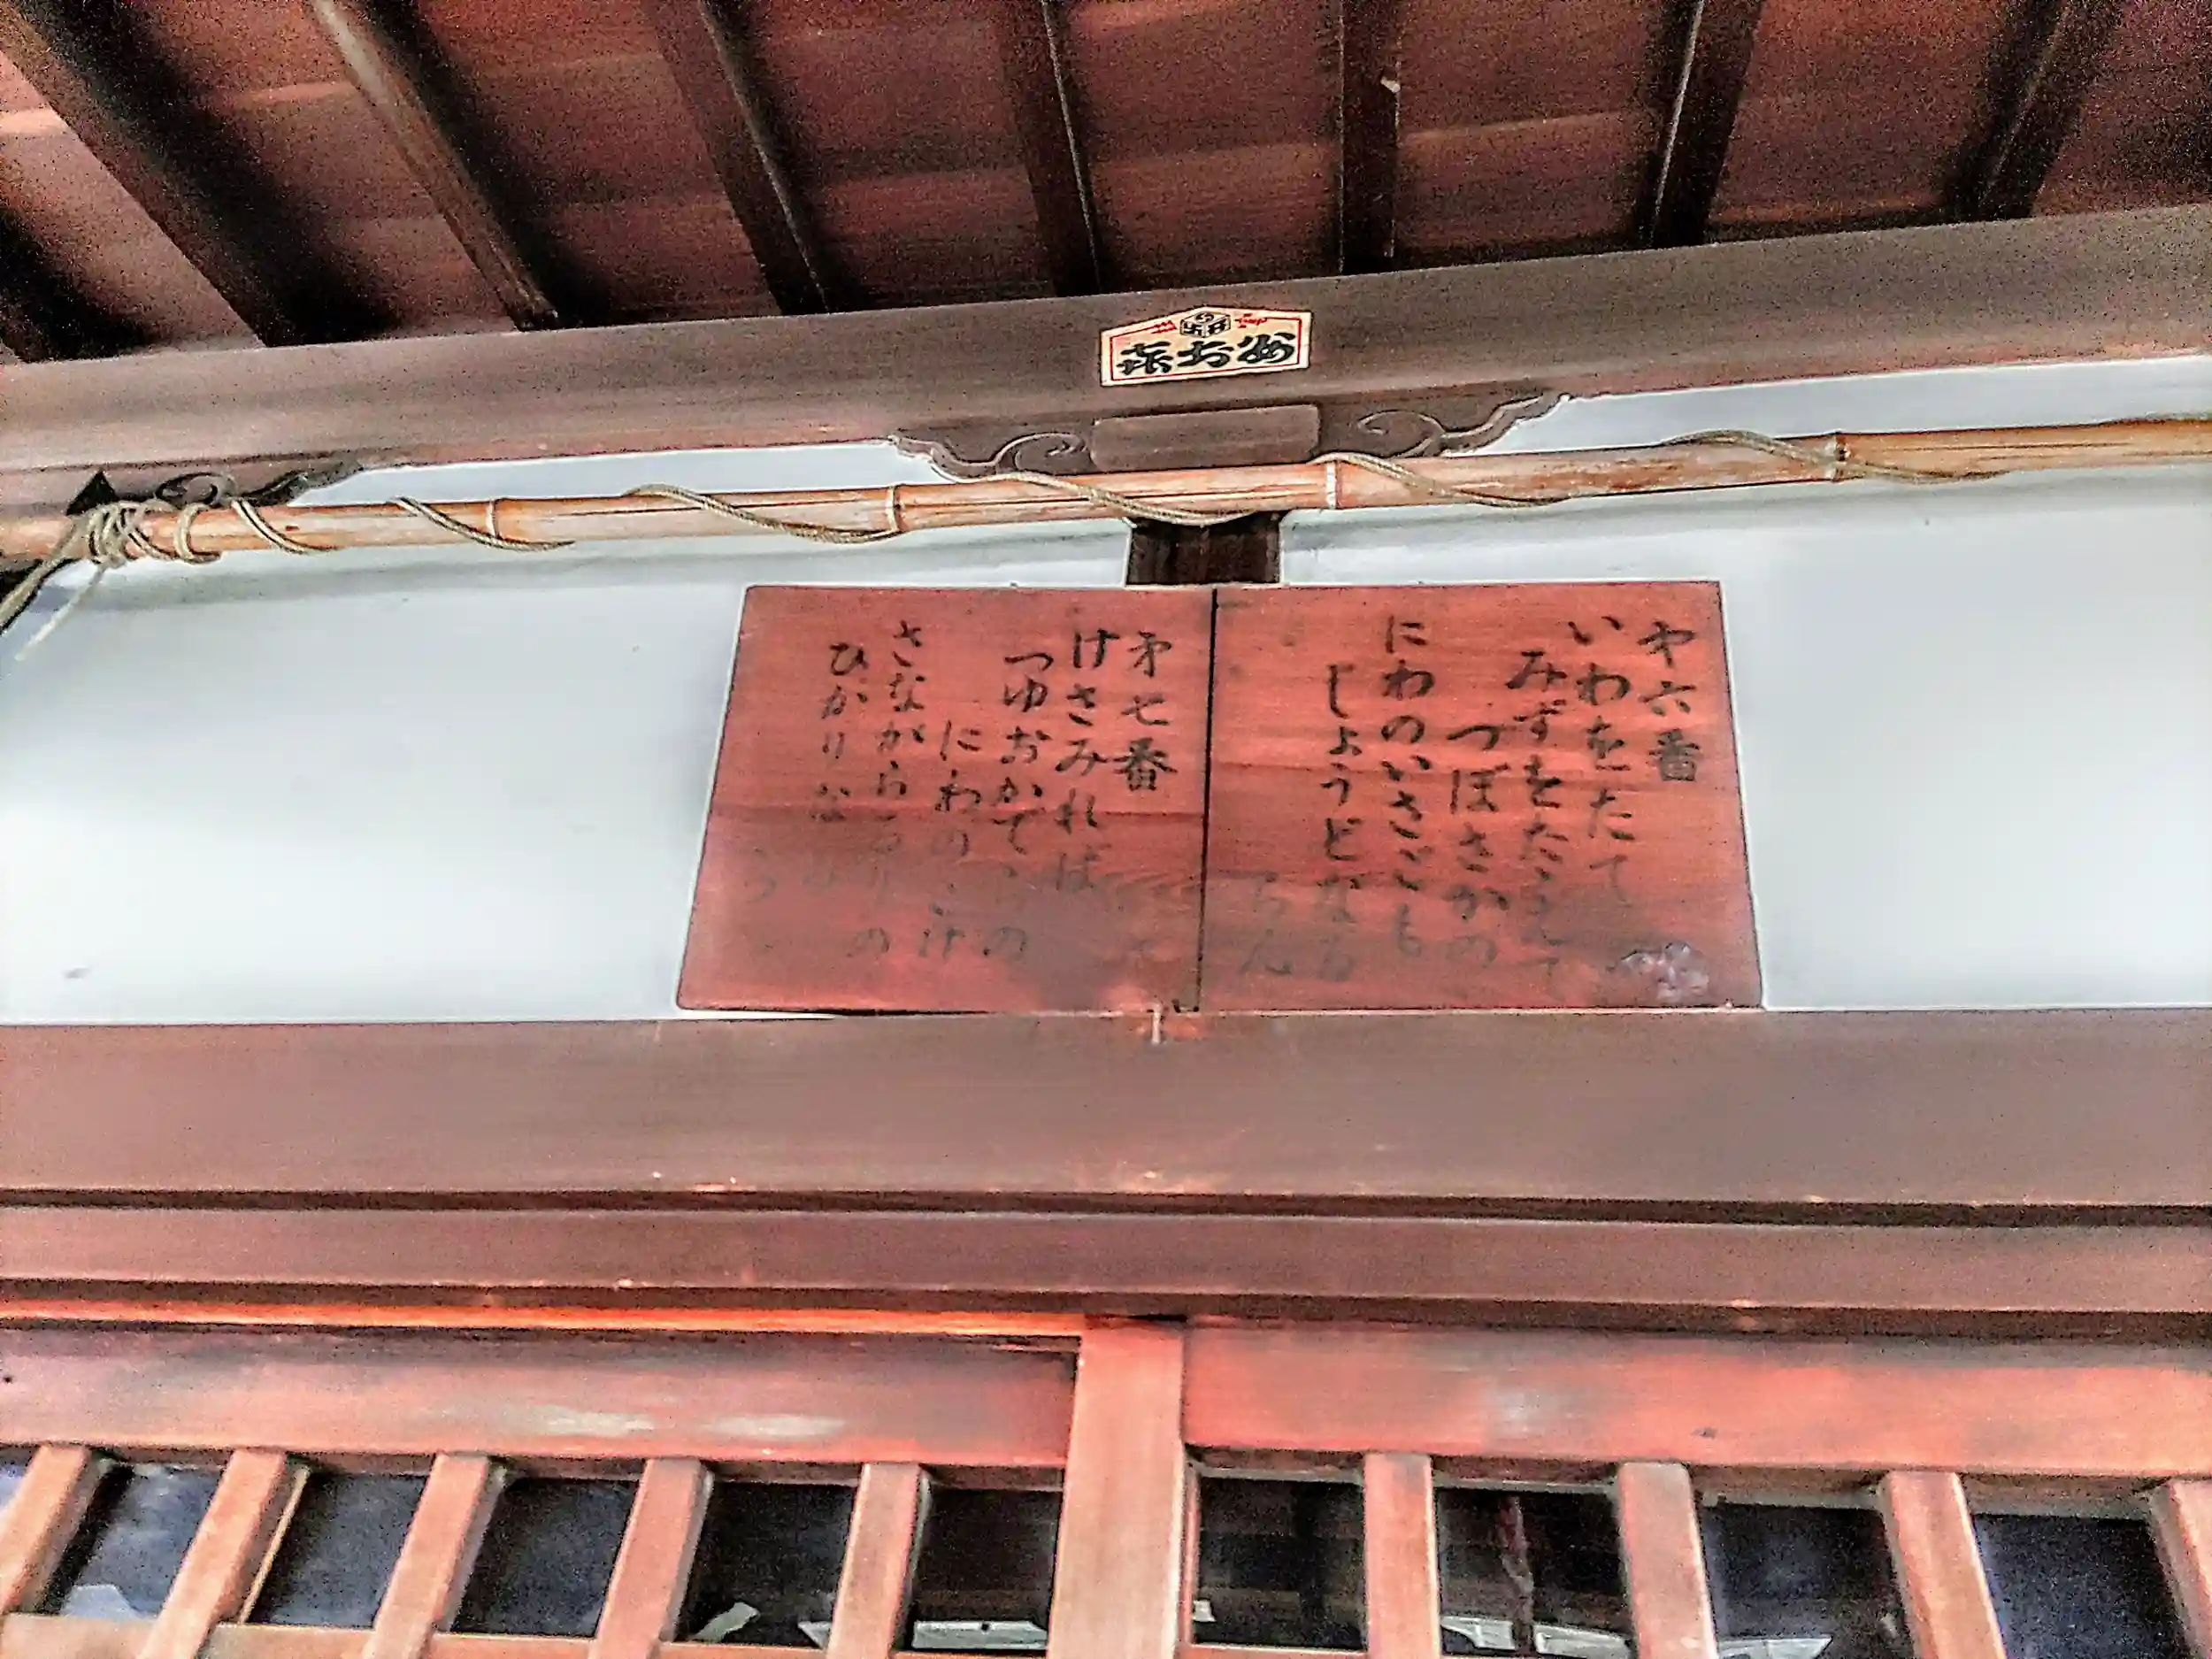 第六番
いわをたて
みずをたたえて
つぼさかの
にわのいさごも
じょうどなる
らん
第七番
けさみれば
つゆおかでらの
にわのこけ
さながらるりの
ひかりな
り